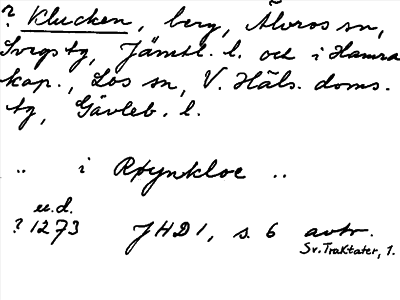 ? Klucken, berg, Älvros sn,
Svegs tg, Jämtl. l. och i Hamra
kap., Los sn, V. Häls. doms.
tg, Gävleb. l.
.. i Røynkloe ..
u.d.
? 1273 JHD 1, s. 6 avtr.
Sv. Traktater, 1.